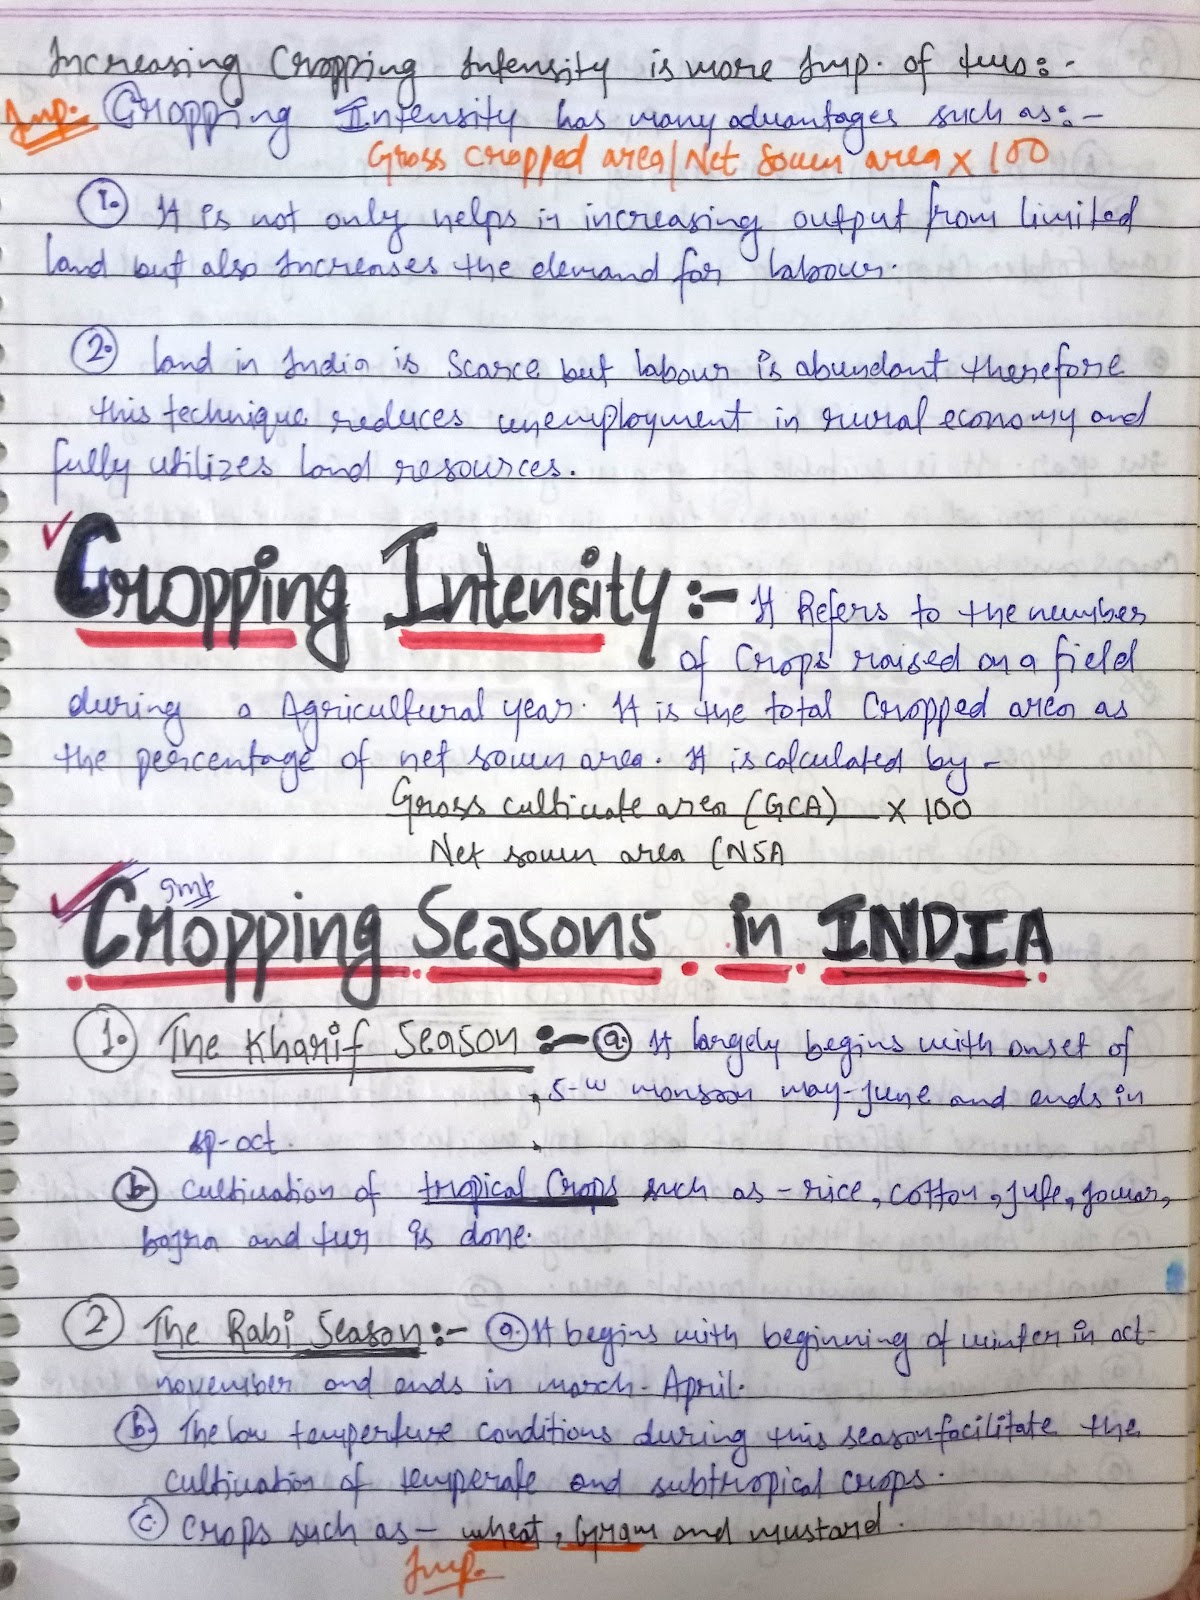 Increasing Cropping Intensity is more Imp. of two:-
Imp. Cropping Intensity has many advantages such as:-
Gross cropped area/Net Sown area x 100
1. It is not only helps in increasing output from limited
land but also Increases the demand for labour.
2. land in India is Scarce but labour is abundant therefore
this technique reduces unemployment in rural economy and
fully utilizes land resources.
Cropping Intensity:- It Refers to the number
of Crops raised on a field
during a Agricultural year. It is the total Cropped area as
the percentage of net sown area. It is calculated by -
Gross cultivate area (GCA) x 100
Net sown area (NSA
Imp
Cropping Seasons in INDIA
1. The Kharif Season:- a. It largely begins with onset of
S-W monsoon may-June and ends in
sp-oct.
b. cultivation of tropical Crops such as - rice, cotton, jute, jowar,
bajra and tur is done.
2 The Rabi Season:- a. It begins with beginning of winter in oct-
november and ends in march-April.
b. The low temperture conditions during this season facilitate the
cultivation of temperate and subtropical crops.
c. crops such as - wheat, Gram and mustard.
Imp.